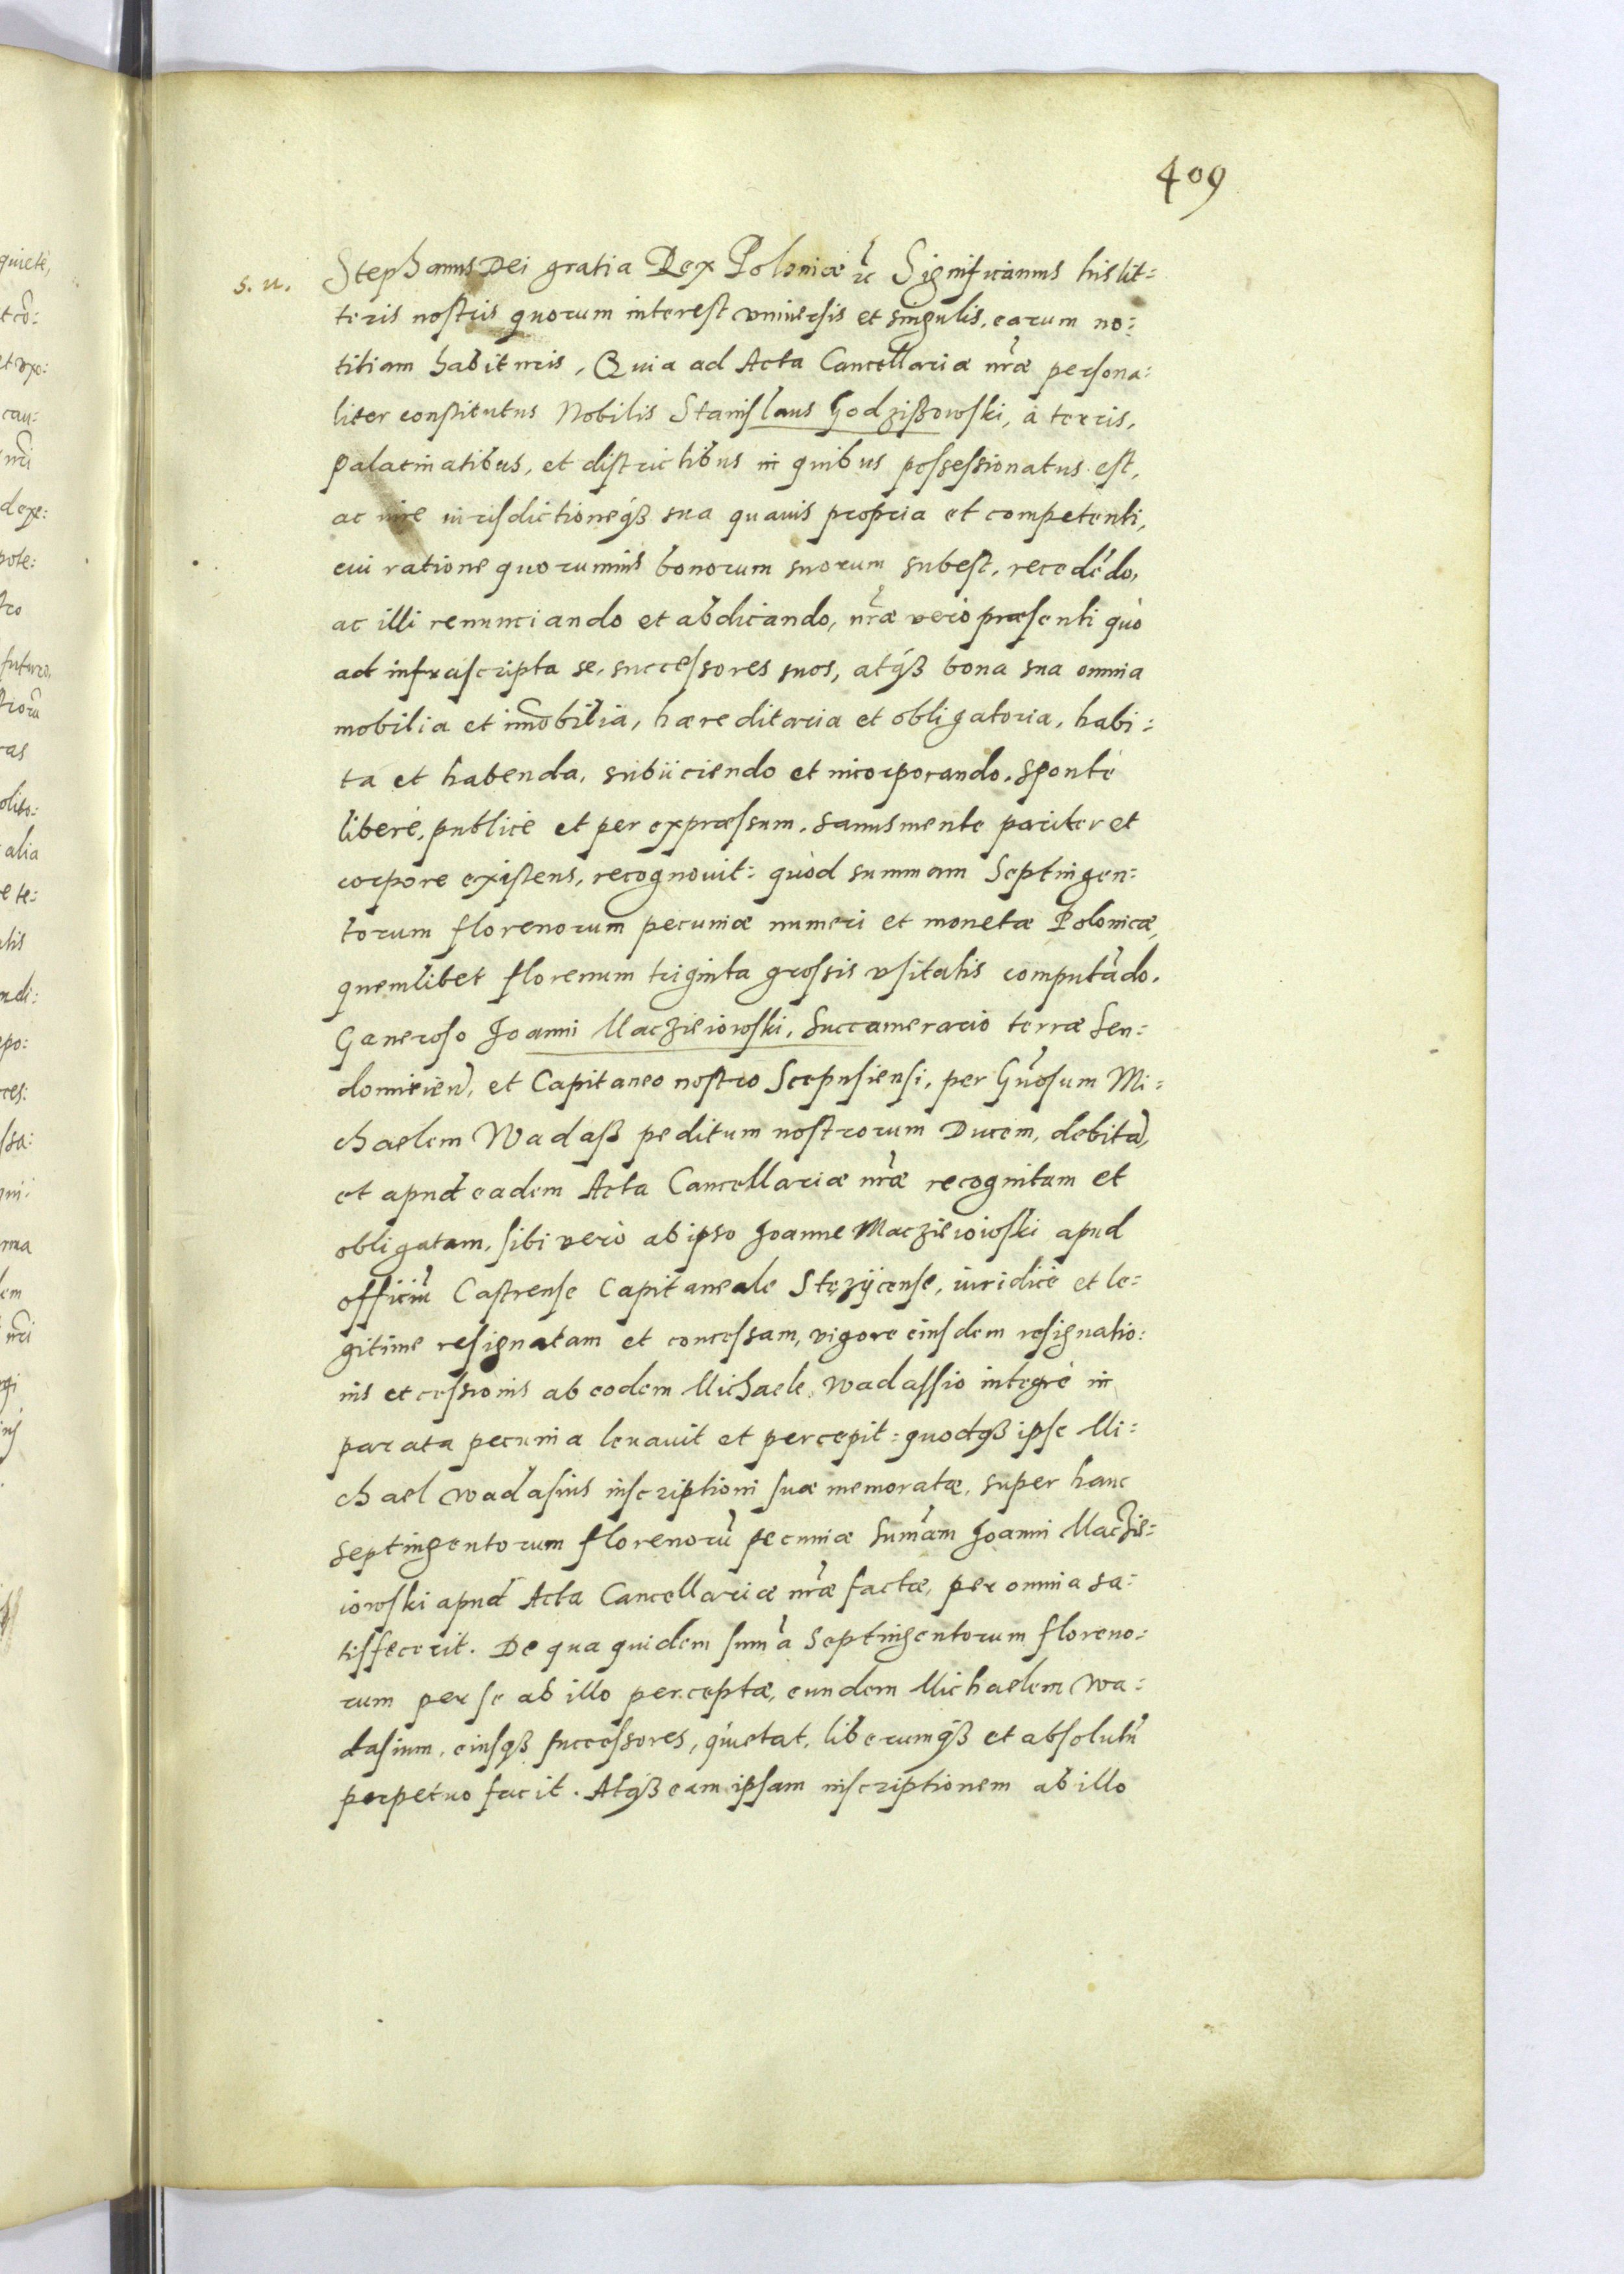 409
s. u.
Stephanus Dei gratia Rex Poloniæ ꝛc̃ Significamus his lit=
teris nostris quorum interest vniuersis et singulis, earum no=
titiam habituris, Quia ad Acta Cancellariæ nr̃æ persona=
liter constitutus Nobilis Stanislaus Godzißowski, à terris,
palatinatibus, et districtibus in quibus possessionatus est,
ac iure iurisdictioneqꝫ sua quauis propria et competenti,
cui ratione quorumuis bonorum suorum subest, recedẽdo,
ac illi renunciando et abdicando, nr̃æ verò præsenti quò
ad infrascripta se, successores suos, atqꝫ bona sua omnia
mobilia et im̃obilia, hæreditaria et obligatoria, habi=
ta et habenda, subijciendo et incorporando, sponte
liberè, publicè et per expræssum, sanus mente pariter et
corpore existens, recognouit: quòd summam Septingen=
torum florenorum pecuniæ numeri et monetæ Polonicæ,
quemlibet florenum triginta grossis vsitatis computãdo,
Generoso Joanni Maczieiowski, Succamerario terræ Sen=
domirieñ, et Capitaneo nostro Scepusiensi, per Gñosum Mi=
chaelem Wadaß peditum nostrorum Ducem, debitã,
et apud eadem Acta Cancellariæ nr̃æ recognitam et
obligatam, sibi verò ab ipso Joanne Maczieiowski apud
officiũ Castrense Capitaneale Stęzycense, iuridicè et le=
gitime resignatam et concessam, vigore eiusdem resignatio=
nis et cessionis ab eodem Michaele Wadassio integrè in
parata pecunia leuauit et percepit: quodqꝫ ipse Mi=
chael Wadasius inscriptioni suæ memoratæ, super hanc
septingentorum florenorũ pecuniæ sum̃am Joanni Maczie=
iowski apud Acta Cancellariæ nr̃æ factæ, per omnia sa=
tisfecerit. De qua quidem sum̃a septingentorum floreno=
rum per se ab illo perceptæ, eundem Michaelem Wa=
dasium, eiusqꝫ successores, quietat, liberumqꝫ et absolutũ
perpetuo facit. Atqꝫ eam ipsam inscriptionem ab illo